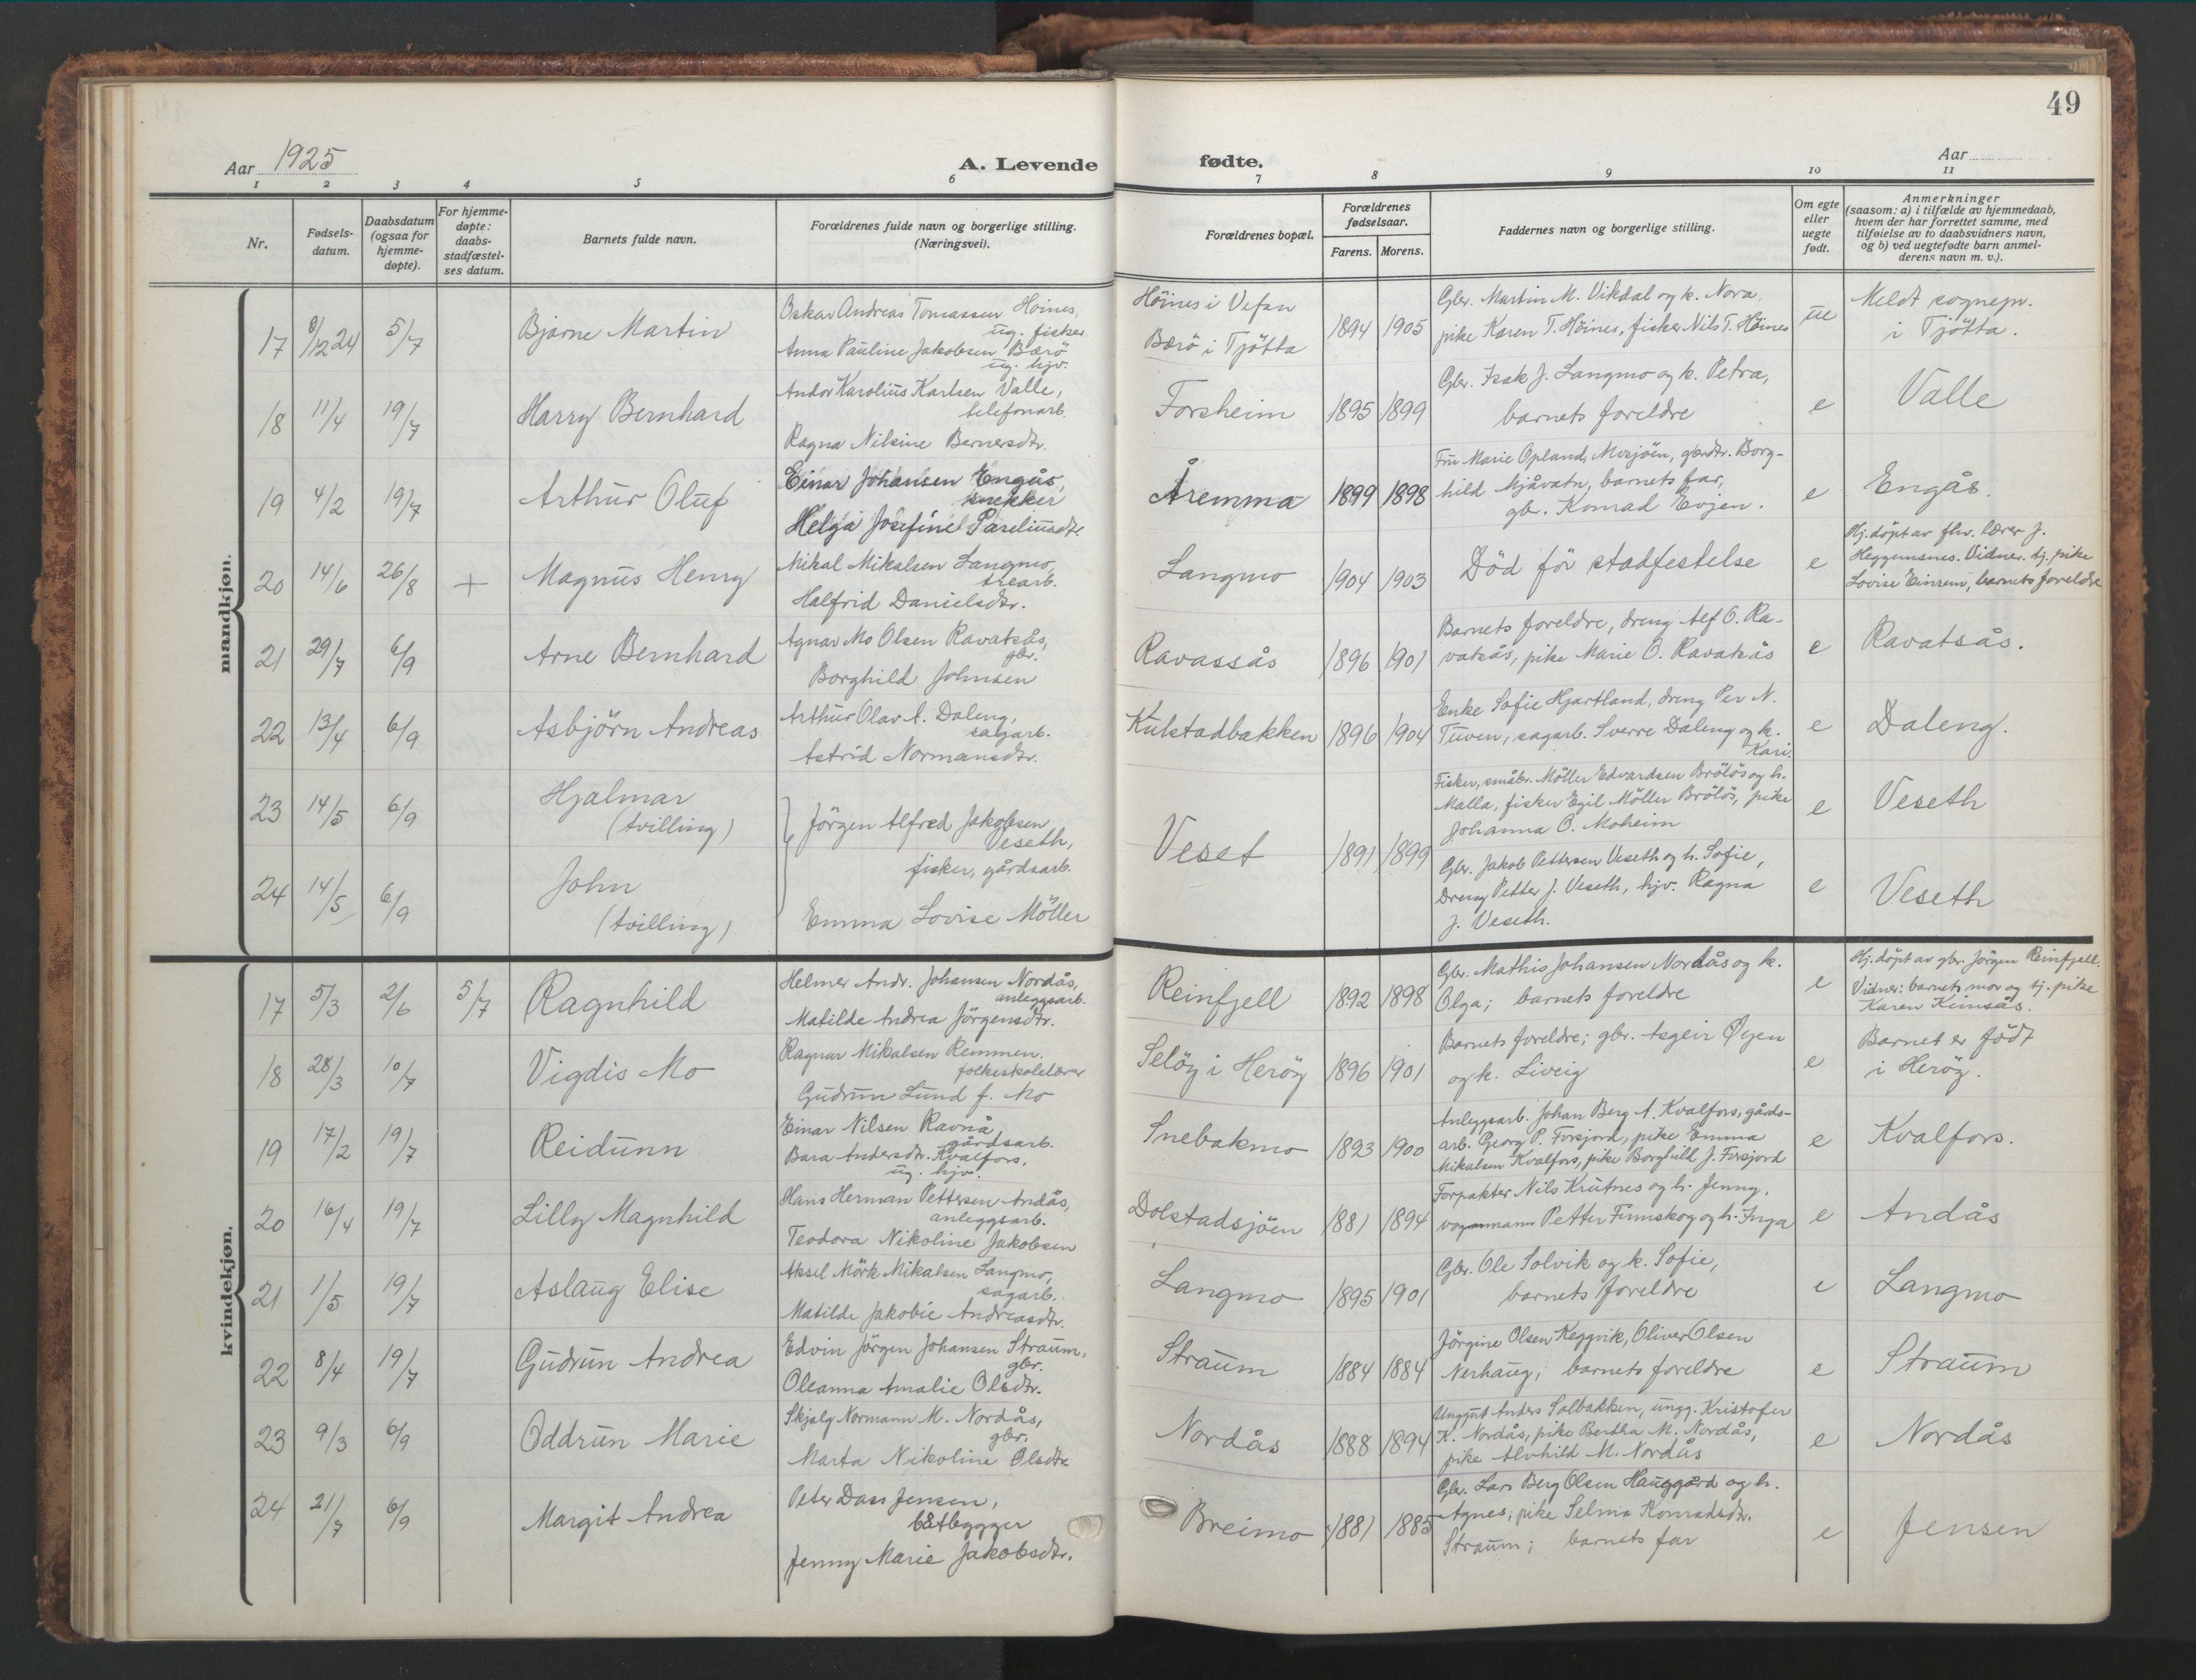 49
Aar 1925
A. Levende fødte.
Aar
1 2 3 4 5 6 7 8 9 10 11
Nr.
Fødsels-
datum.
Daabsdatum
(ogsaa for
hjemme-
døpte).
For hjemme-
døpte:
daabs-
stadfæstel-
ses datum.
Barnets fulde navn.
Forældrenes fulde navn og borgerlige stilling.
(Næringsvei).
Forældrenes bopæl.
Forældrenes
fødselsaar.
Farens. Morens.
Faddernes navn og borgerlige stilling.
Om egte
eller
uegte
født.
Anmerkninger
(saasom: a) i tilfælde av hjemmedaab,
hvem der har forrettet samme, med
tilføielse av to daabsvidners navn,
og b) ved uegtefødte barn anmel-
derens navn m. v.).
mandkjøn.
17 8/12 24 5/7 Bjarne Martin
Oskar Andreas Tomassen Höines,
ug. fisker
Anna Pauline Jakobsen Bærö
ug. hjv.
Höines i Vefsn
Bærö i Tjötta
1894 1905
Gbr. Martin M. Vikdal og k. Nora,
pike Karen T. Höines, fisker Nils T. Höines
ue
Meldt sognepr.
i Tjötta.
18 11/4 19/7 Harry Bernhard
Andor Karolius Karlsen Valle,
telefonarb.
Ragna Nilsine Bernersdtr.
Forsheim 1895 1899
Gbr. Isak J. Langmo og k. Petra,
barnets foreldre
e Valle
19 4/2 19/7 Arthur Oluf
Einar Johansen Engås,
snekker
Helga Josefine Pareliusdtr.
Åremma 1899 1898
Fru Marie Opland, Mosjöen, gbrdtr. Borg-
hild Mjåvatn, barnets far,
gbr. Konrad Evjen.
e Engås.
20 14/6 26/8 + Magnus Henry
Mikal Mikalsen Langmo,
trearb.
Halfrid Danielsdtr.
Langmo 1904 1903
Död för stadfestelse
e
Hj. döpt av fhv. lærer J.
Heggemsnes. Vidner: tj. pike
Lovise Einrem, barnets foreldre
21 29/7 6/9 Arne Bernhard
Agnar Mo Olsen Ravatsås,
gbr.
Borghild Johnsen
Ravassås 1896 1901
Barnets foreldre, dreng Alf O. Ra-
vatsås, pike Marie O. Ravatsås
e Ravatsås.
22 13/4 6/9 Asbjörn Andreas
Arthur Olav A. Daleng,
sagarb.
Astrid Normansdtr.
Kulstadbakken 1896 1904
Enke Sofie Hjartland, dreng Per N.
Tuven, sagarb. Sverre Daleng og k.
Kari.
e Daleng.
23 14/5 6/9 Hjalmar
(tvilling)
Jörgen Alfred Jakobsen
Veseth,
fisker, gårdsarb.
Emma Lovise Möller
Veset 1891 1899
Fisker, småbr. Möller Edvardsen Brölös og h.
Malla, fisker Egil Möller Brölös, pike
Johanna O. Moheim
e Veseth
24 14/5 6/9 John
(tvilling)
Gbr. Jakob Pettersen Veseth og h. Sofie,
Dreng Petter J. Veseth, hjv. Ragna
J. Veseth.
e Veseth
kvindekjøn.
17 5/3 2/6 5/7 Ragnhild
Helmer Andr. Johansen Nordås,
anleggsarb.
Matilde Andrea Jörgensdtr.
Reinfjell 1892 1898
Gbr. Mathis Johansen Nordås og k.
Olga; barnets foreldre
e
Hj. döpt av gbr. Jörgen Reinfjell.
Vidner: barnets mor og tj. pike
Karen Kimsås.
18 28/3 10/7 Vigdis Mo
Ragnar Mikalsen Remmen,
folkeskolelærer
Gudrun Lund f. Mo
Selöy i Heröy 1896 1901
Barnets foreldre; gbr. Asgeir Öyen
og k. Liveig
e
Barnet er födt
i Heröy.
19 17/2 19/7 Reidunn
Einar Nilsen Ravnå
gårdsarb.
Bara Andersdtr. Kvalfors,
ug. hjv.
Snebakmo 1893 1900
Anleggsarb. Johan Berg A. Kvalfors, gårds-
arb. Georg P. Forsjord, pike Emma
Mikalsen Kvalfors, pike Borghild J. Forsjord
e Kvalfors.
20 16/4 19/7 Lilly Magnhild
Hans Herman Pettersen Andås,
anleggsarb.
Teodora Nikoline Jakobsen
Dolstadsjöen 1881 1894
Forpakter Nils Krutnes og h. Jenny,
vognmann Petter Finnskog og h. Inga
e Andås
21 1/5 19/7 Aslaug Elise
Aksel Mörk Mikalsen Langmo,
sagarb.
Matilde Jakobie Andreasdtr.
Langmo 1895 1901
Gbr. Ole Solvik og k. Sofie,
barnets foreldre
e Langmo
22 8/4 19/7 Gudrun Andrea
Edvin Jörgen Johansen Straum,
gbr.
Oleanna Amalie Olsdtr.
Straum 1884 1884
Jörgine Olsen Keggvik, Oliver Olsen
Nerhaug; barnets foreldre
e Straum
23 9/3 6/9 Oddrun Marie
Skjalg Normann M. Nordås,
gbr.
Marta Nikoline Olsdtr
Nordås 1888 1894
Unggut Anders Solbakken, ungg. Kristofer
K. Nordås, pike Bertha M. Nordås,
pike Alvhild M. Nordås
e Nordås
24 21/7 6/9 Margit Andrea
Peter Dass Jensen,
båtbygger
Jenny Marie Jakobsdtr.
Breimo 1881 1885
Gbr. Lars Berg Olsen Hauggård og h.
Agnes; pike Selma Konradsdtr.
Straum; barnets far
e Jensen